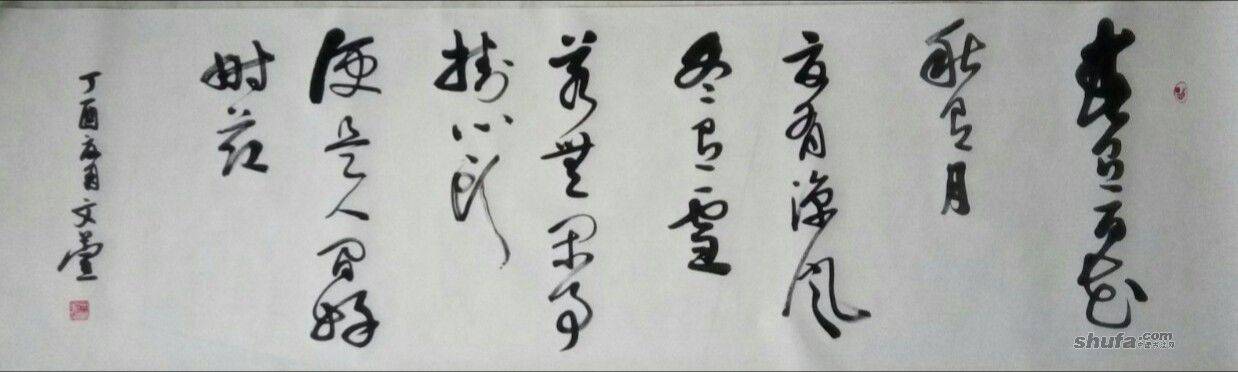 春有百花
秋有月
夏有涼风
冬有雪
若無闲事
掛心头
便是人间好
时节
丁酉 文萱
shufa.com